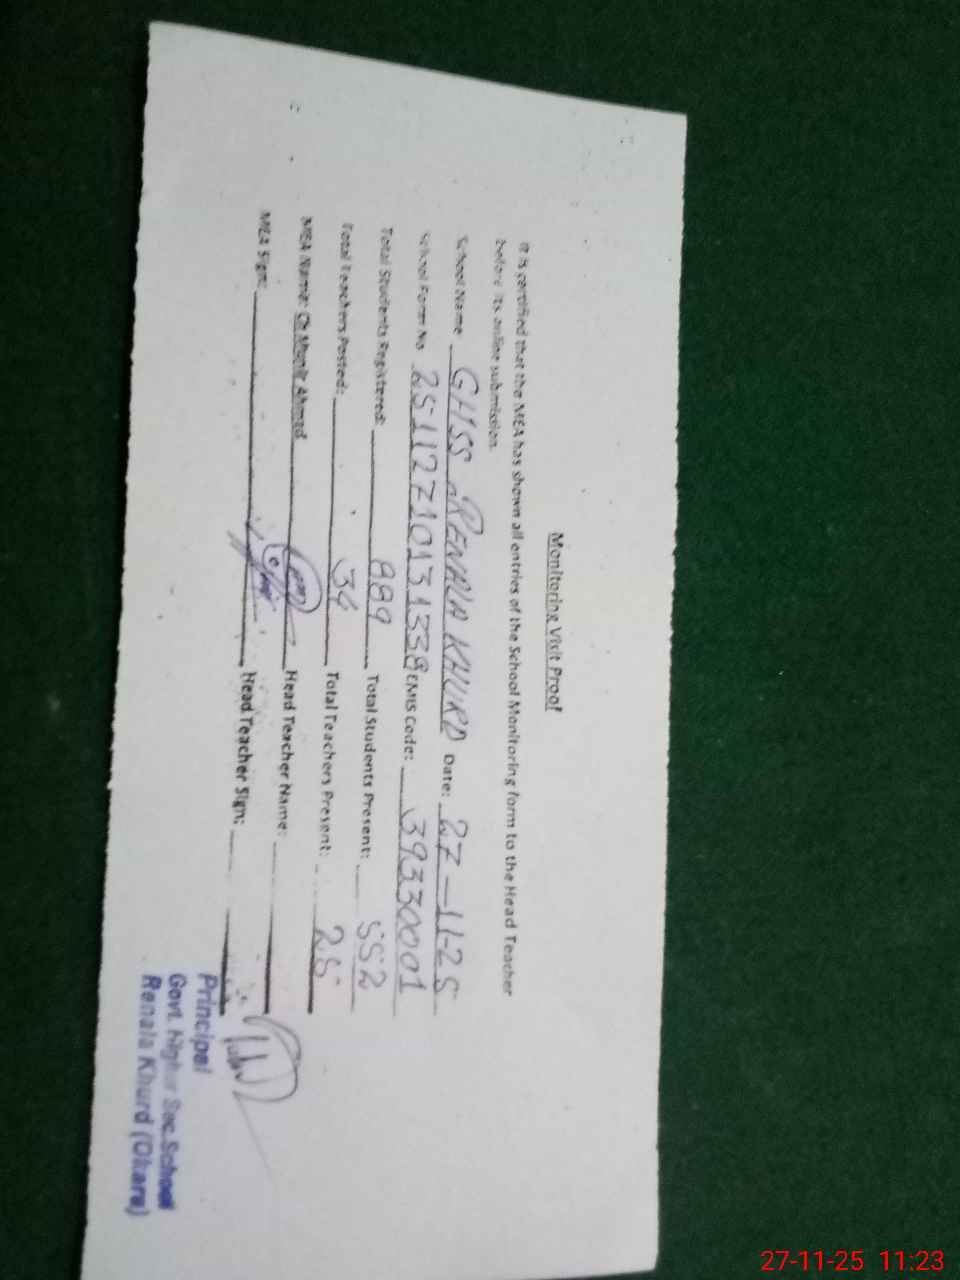 Monitoring Visit Proof
It is certified that the MEA has shown all entries of the School Monitoring form to the Head Teacher
before its online submission.
School Name GHSS RENALA KHURD Date: 27-11-25
School Form No 25112710131338 EMIS Code: 39330001
Total Students Registered: 889 Total Students Present: 552
Total Teachers Posted: 34 Total Teachers Present: 25
MEA Name: Ch Munir Ahmed Head Teacher Name:
MEA Sign: Head Teacher Sign:
Principal
Govt. Higher Sec.School
Renala Khurd (Okara)
27-11-25 11:23